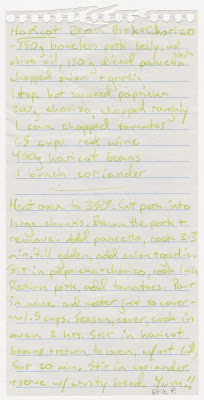 Haricot Bean Pork & Chorizo
-750g boneless pork belly, no skin
olive oil, 130g diced pancetta
chopped onion & garlic
1 tsp. hot smoked paprika
200g chorizo, chopped roughly
1 can chopped tomatos
1.5 cups red wine
400g haricot beans
1 bunch coriander
Heat oven to 350°. Cut pork into
large chunks. Brown the pork &
remove. Add pancetta, cook 2-3
min. till golden, add onion & garlic.
Stir in paprika & chorizo, cook 1 min.
Return pork, add tomatoes. Pour
in wine and water just to cover-
1.5 cups. Season, cover, cook in
oven 2 hrs. Stir in haricot
beans & return to oven, w/out lid,
for 20 min. Stir in coriander
& serve w/ crusty bread. Yum!!